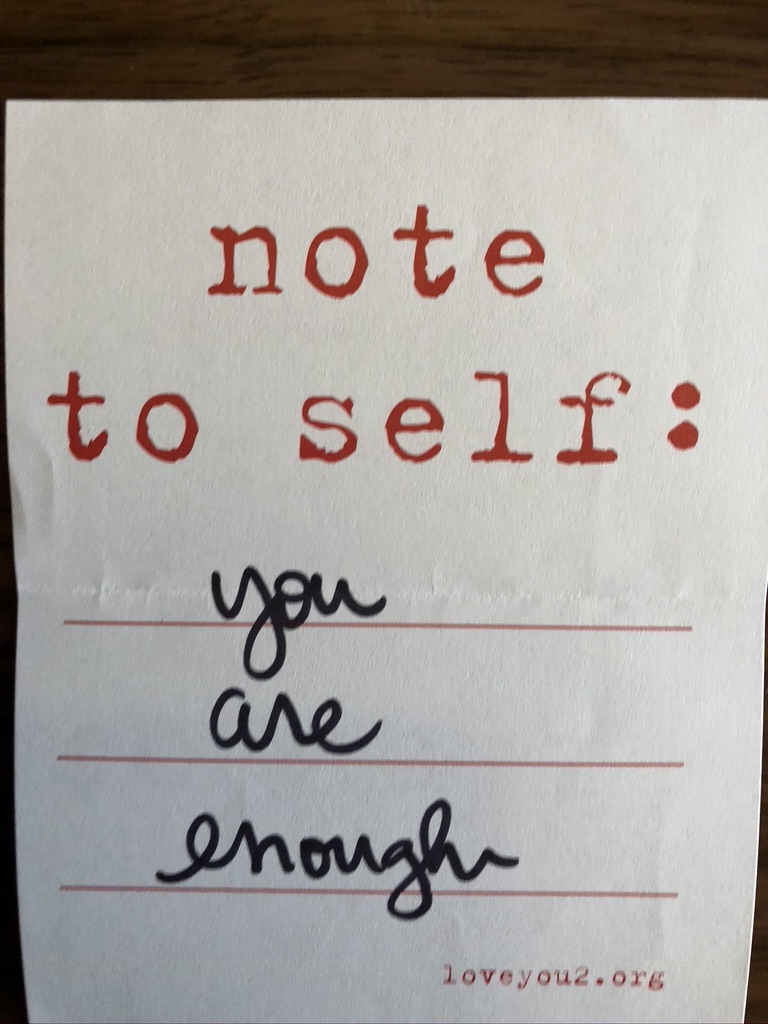 note
to self:
you
are
enough
loveyou2.org